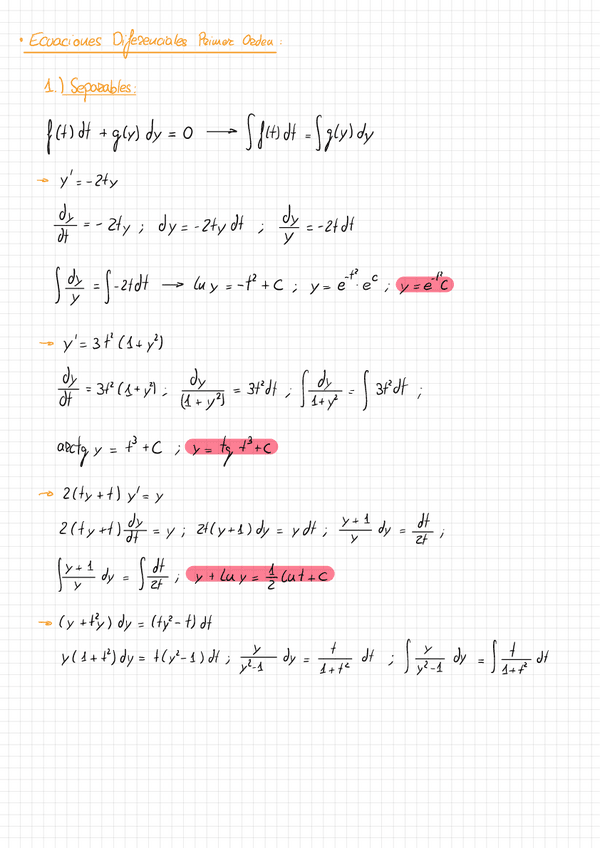 • Ecuaciones Diferenciales Primer Orden:
1.) Separables:
f(t) dt + g(y) dy = 0 → ∫ f(t) dt = ∫ g(y) dy
→ y' = -2ty
dy/dt = -2ty ; dy = -2ty dt ; dy/y = -2t dt
∫ dy/y = ∫ -2t dt → ln y = -t² + C ; y = e^-t² · e^C ; y = e^-t² C
→ y' = 3t² (1+y²)
dy/dt = 3t² (1+y²) ; dy/(1+y²) = 3t² dt ; ∫ dy/1+y² = ∫ 3t² dt ;
arctg y = t³ + C ; y = tg t³+C
→ 2(ty+t) y' = y
2(ty+t) dy/dt = y ; 2t(y+1) dy = y dt ; y+1/y dy = dt/2t ;
∫ y+1/y dy = ∫ dt/2t ; y + ln y = 1/2 ln t + C
→ (y + t²y) dy = (ty² - t) dt
y(1+t²) dy = t(y²-1) dt ; y/y²-1 dy = t/1+t² dt ; ∫ y/y²-1 dy = ∫ t/1+t² dt